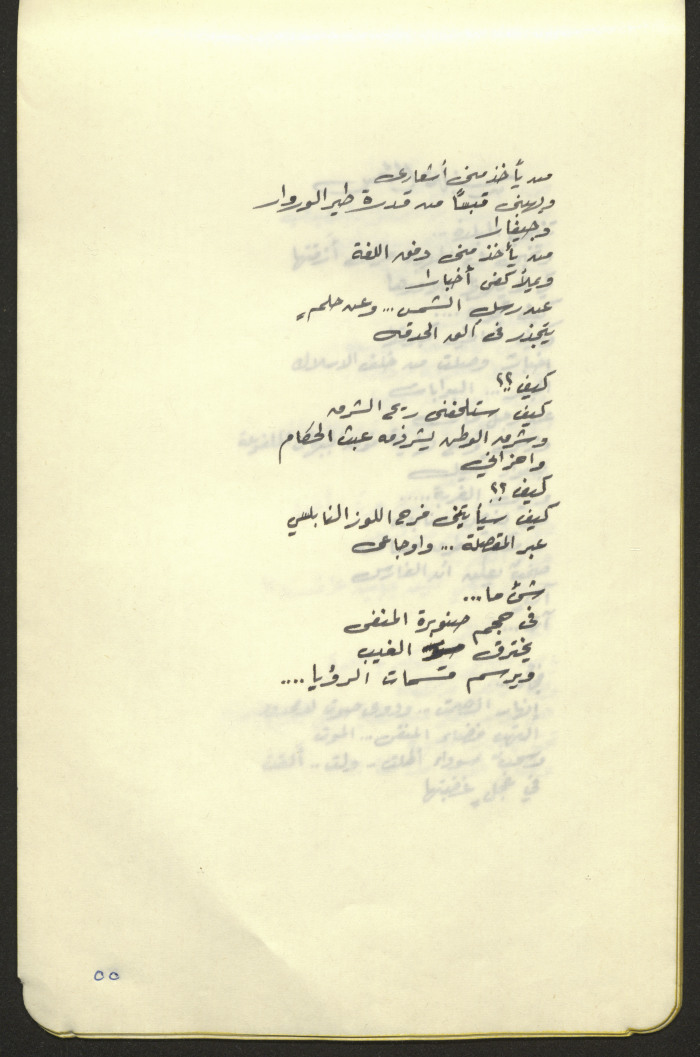 من يأخذ مني أشعاري
ويهبني قبسًا من قدرة طير الوروار
وجيفارا
من يأخذ مني دفق اللغة
ويملأ كفي أخبارا
عند رسل الشمس ... وعن حلمٍ
يتجذر في ألق الحدقه
كيف ؟؟
كيف ستلحفني ريح الشرق
وشرق الوطن يشرذمه عبث الحكام
واحزاني
كيف ؟؟
كيف سيأتيني فرح اللوز النابلسي
عبر المقصلة ... واوجاعي
شئ ما ...
في حجم صنوبرة المنفى
يخترق الغيب
ويرسم قسمات الرؤيا ....
٥٥